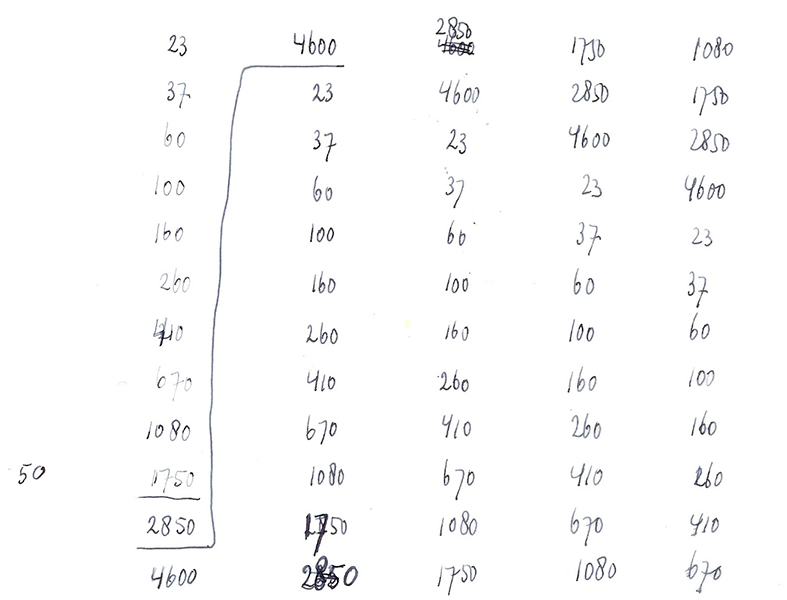 23 4600 2850 1750 1080
37 23 4600 2850 1750
60 37 23 4600 2850
100 60 37 23 4600
160 100 60 37 23
260 160 100 60 37
410 260 160 100 60
670 410 260 160 100
1080 670 410 260 160
50 1750 1080 670 410 260
2850 1750 1080 670 410
4600 2850 1750 1080 670